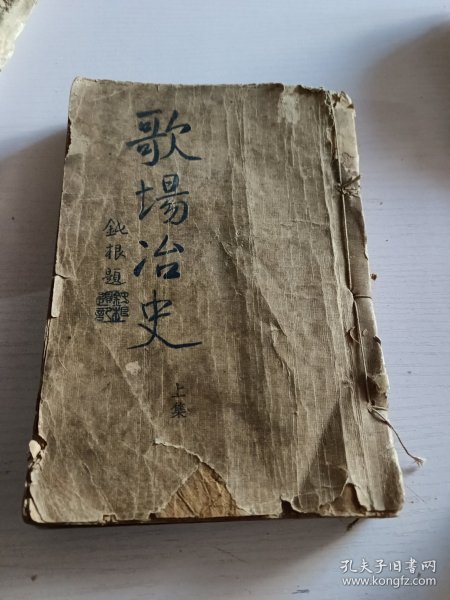 歌場冶史
鈍根題
上集
孔夫子旧书网
www.kongfz.com